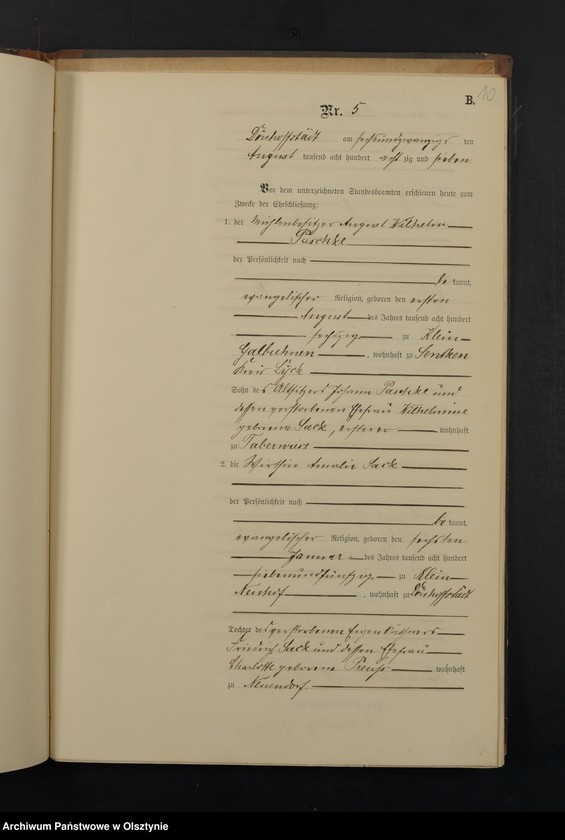 B.
10
Nr. 5
Dönhoffstädt am sechsundzwanzigsten
August tausend acht hundert achtzig und sieben
Vor dem unterzeichneten Standesbeamten erschienen heute zum
Zwecke der Eheschließung:
1. der Mühlenbesitzer August Wilhelm
Paschke
der Persönlichkeit nach
bekannt,
evangelischer Religion, geboren den ersten
August des Jahres tausend acht hundert
sechzig zu Klein
Galbuhnen, wohnhaft zu Sentken
Kreis Lyck
Sohn des Altsitzers Johann Paschke und
dessen verstorbenen Ehefrau Wilhelmine
geborene Sack, ersterer wohnhaft
zu Taberwiese
2. die Wirthin Amalie Sack
der Persönlichkeit nach
bekannt,
evangelischer Religion, geboren den sechsten
Januar des Jahres tausend acht hundert
siebenundfünfzig zu Klein
Neuhof, wohnhaft zu Dönhoffstädt
Tochter des verstorbenen Eigenkäthners
Friedrich Sack und dessen Ehefrau
Charlotte geborene Preuß wohnhaft
zu Neuendorf
Archiwum Państwowe w Olsztynie